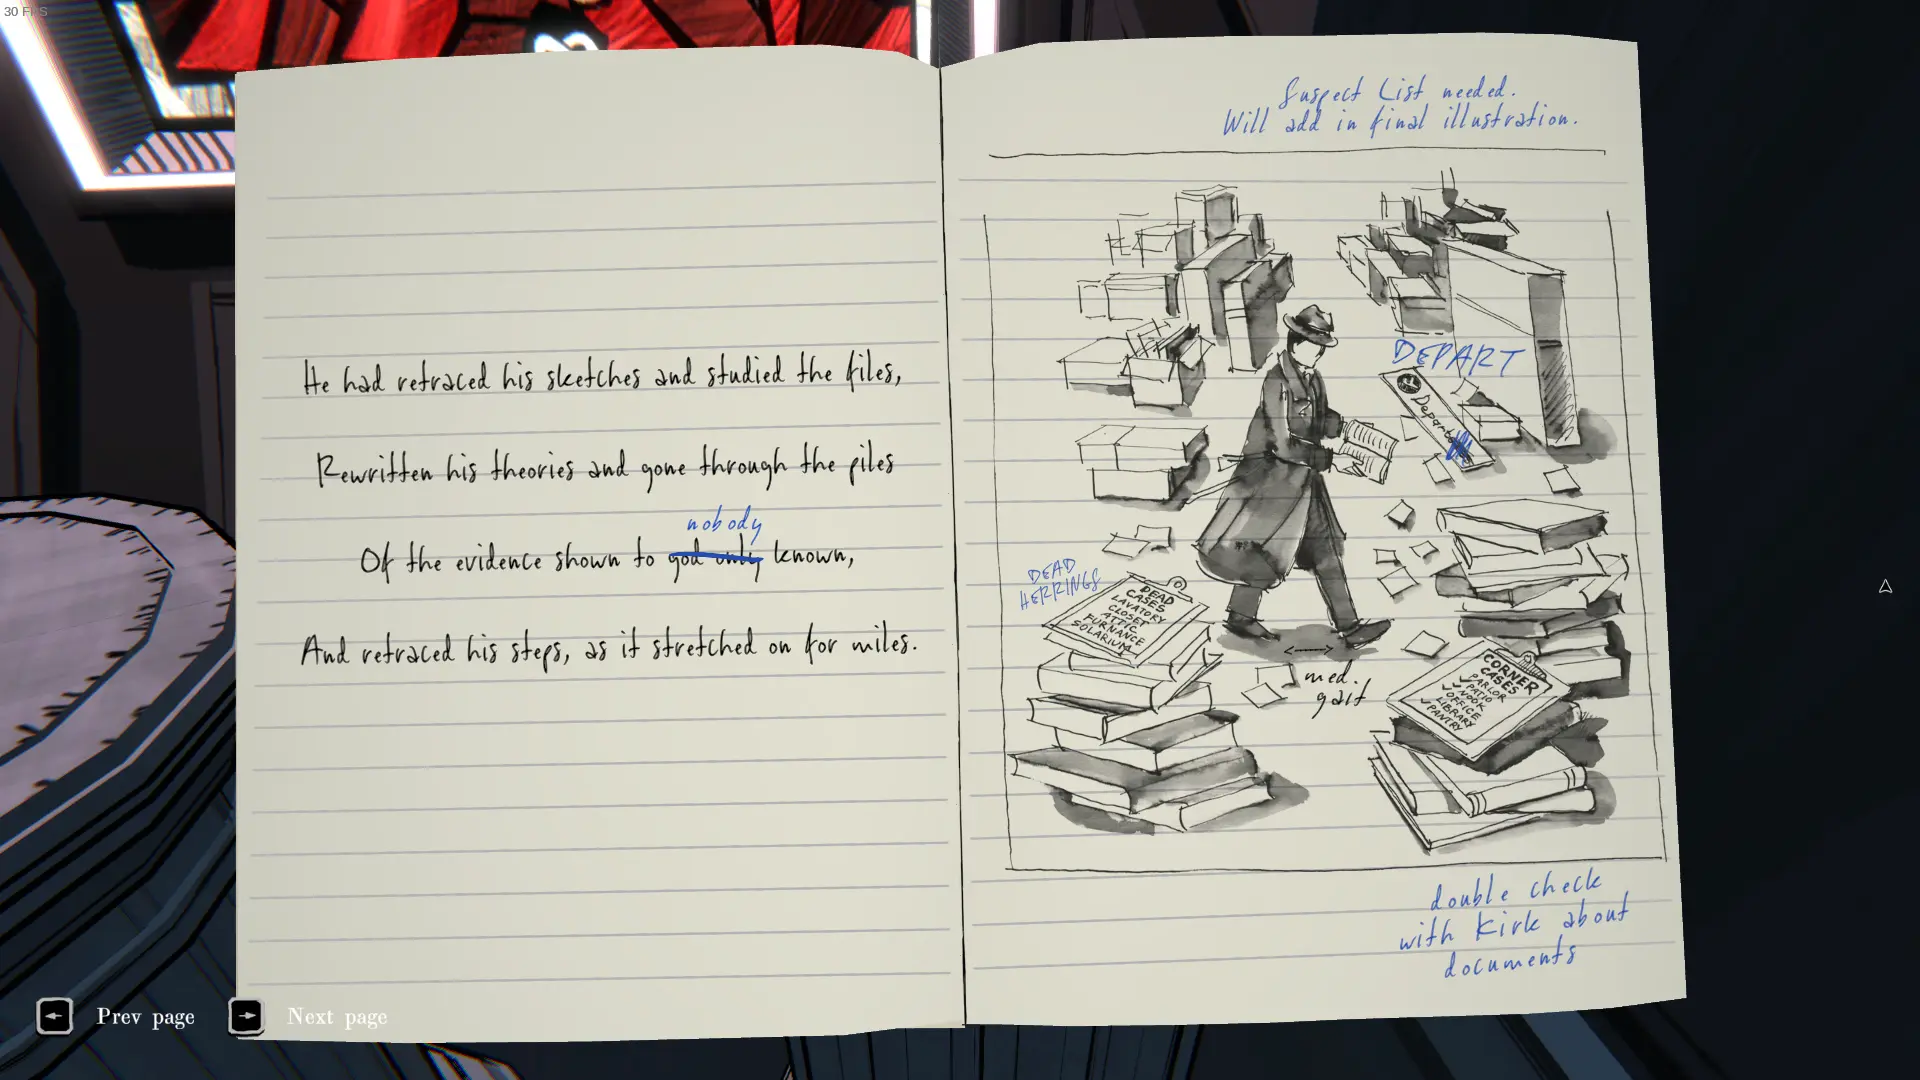 30 FPS
He had retraced his sketches and studied the files,
Rewritten his theories and gone through the piles
nobody
Of the evidence shown to god only known,
And retraced his steps, as it stretched on for miles.
Suspect List needed.
Will add in final illustration.
DEPART
Depart
DEAD
HERRINGS
DEAD
CASES
LAVATORY
CLOSET
ATTIC
FURNANCE
SOLARIUM
med.
gait
CORNER
CASES
PARLOR
✓PATIO
✓NOOK
✓OFFICE
LIBRARY
✓PANTRY
double check
with Kirk about
documents
← Prev page → Next page